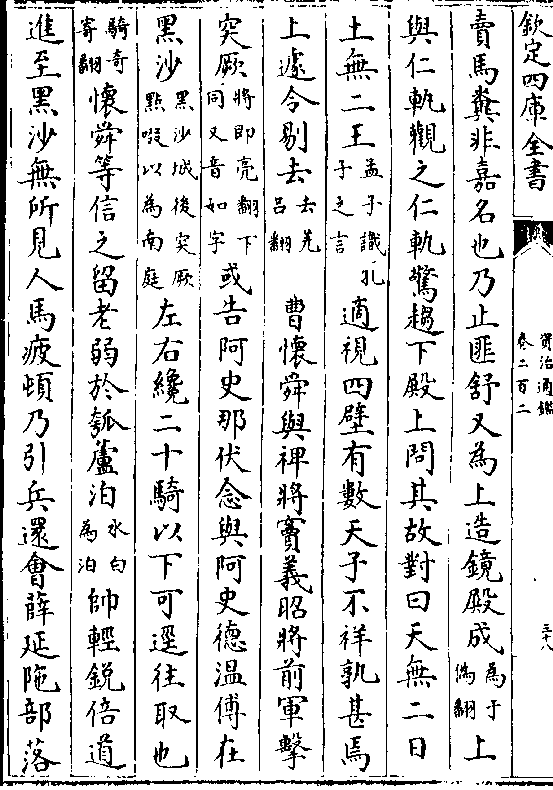 欽定四庫全書
資治通鑑
卷二百二
三十八
賣馬糞非嘉名也乃止匪舒又為上造鏡殿成為于偽翻上
與仁軌觀之仁軌驚趨下殿上問其故對曰天無二日
土無二王孟子識孔子之言適視四壁有數天子不祥孰甚焉
上遽令剔去去羌呂翻 曹懷舜與裨將竇義昭將前軍擊
突厥將即亮翻下同又音如字或告阿史那伏念與阿史德温傅在
黑沙黑沙城後突厥默啜以為南庭左右纔二十騎以下可逕往取也
騎奇寄翻懷舜等信之留老弱於瓠蘆泊水白為泊帥輕鋭倍道
進至黑沙無所見人馬疲頓乃引兵還會薛延陁部落